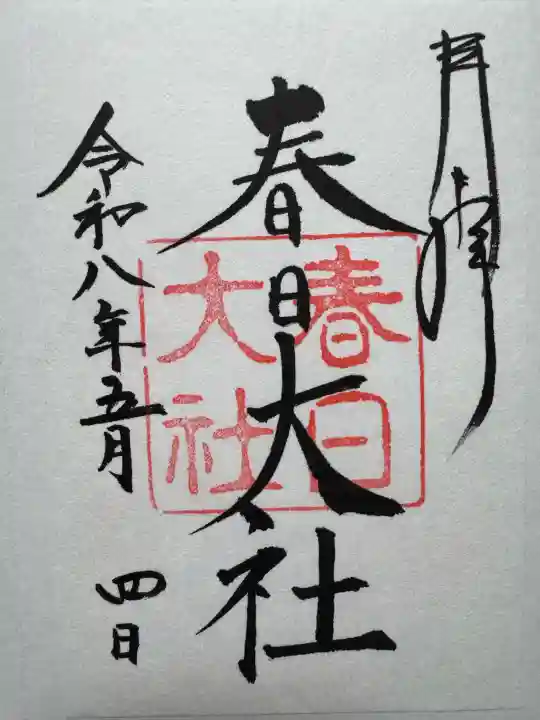 春日大社
春日
大社
令和八年五月
四日